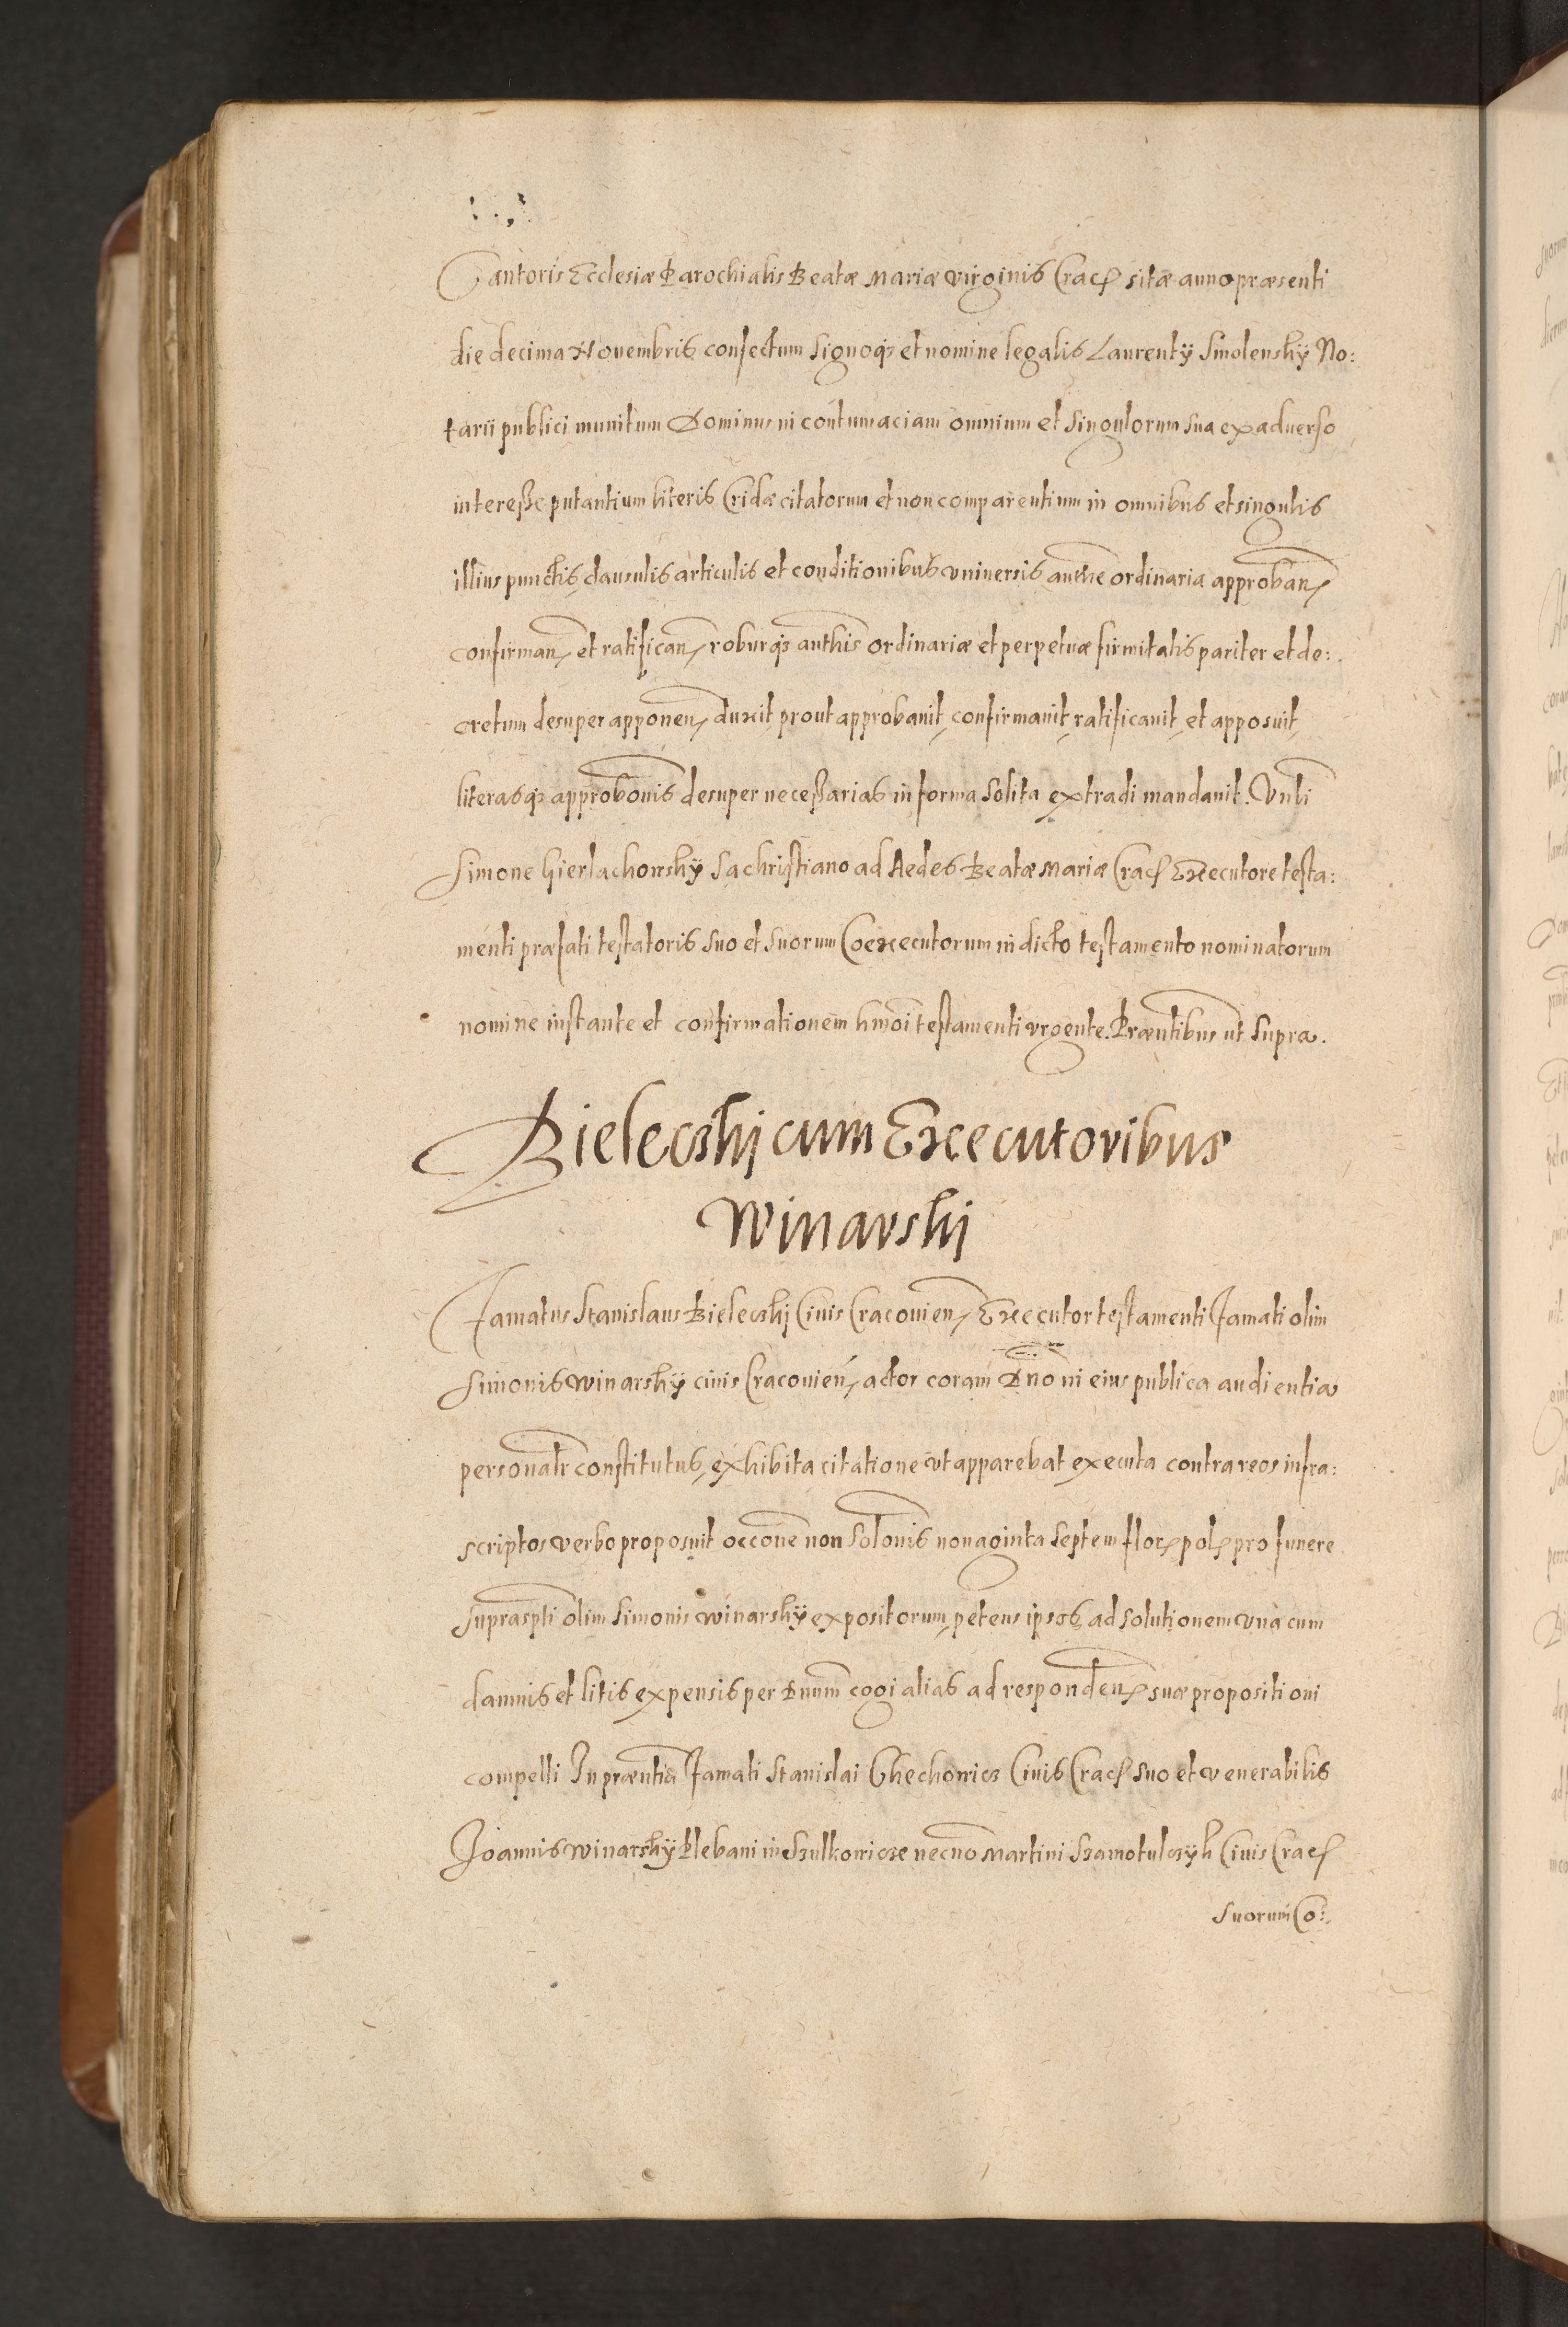 Cantoris Ecclesiæ Parochialis Beatæ Mariæ Virginis Crac. sitæ anno præsenti
die decima Novembris confectum signoq3 et nomine legalis Laurentÿ Smolenskÿ No:
tarii publici munitum Dominus in contumaciam omnium et singulorum sua ex adverso
interesse putantium literis Cridæ citatorum et non comparentium in omnibus et singulis
illius punctis, clausulis articulis et conditionibus vniversis, authe ordinaria approban,
confirman, et ratifican, roburq3 authis ordinariæ et perpetuæ firmitatis pariter et de:
cretum desuper apponen, duxit, prout approbavit, confirmavit, ratificavit, et apposuit,
literasq3 approbonis desuper necessarias in forma solita extradi mandavit.
Simone Gierlachowskÿ Sachristiano ad Aedes Beatæ Mariæ Crac. Executore testa:
menti præfati testatoris suo et suorum Coexecutorum in dicto testamento nominatorum
nomine instante et confirmationem hmoi testamenti vrgente. Præntibus ut supra.
Bieleczki cum Executoribus
Winarski
Famatus Stanislaus Bieleczkj Civis Cracovien, Executor testamenti Famati olim
Simonis Winarskÿ civis Cracovien, actor coram Dno in eius publica audientia
personalr constitutus, exhibita citatione vt apparebat executa contra reos infra:
scriptos verbo proposuit occone non solonis nonaginta septem flor. pol. pro funere
supraspti olim Simonis Winarskÿ expositorum, petens ipsos, ad solutionem vna cum
damnis et litis expensis per Dnum cogi alias ad responden. suæ propositioni
compelli In præntia Famati Stanislai Chechowicz Civis Crac. suo et venerabilis
Joannis Winarskÿ Plebani in Szulkowicze necno Martini Szamotulczyk Civis Crac.
suorum Co: